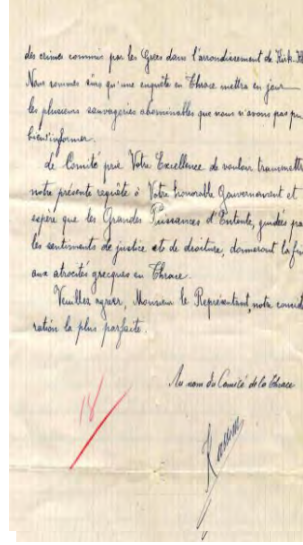 des crimes commis par les Grecs dans l'arrondissement de Kirk-
Nous sommes sûrs qu'une enquête en Thrace mettra en jour
les plusieurs sauvageries abominables que nous n'avons pas pu
bien informer.
Le Comité prie Votre Excellence de vouloir transmettre
notre présente requête à Votre honorable Gouvernement et
espère que les Grandes Puissances d'Entente, guidées par
les sentiments de justice et de droiture, donneront la fin
aux atrocités grecques en Thrace.
Veuillez agréer, Monsieur le Représentant, notre considé
ration la plus parfaite.
Au nom du Comité de la Thrace
18